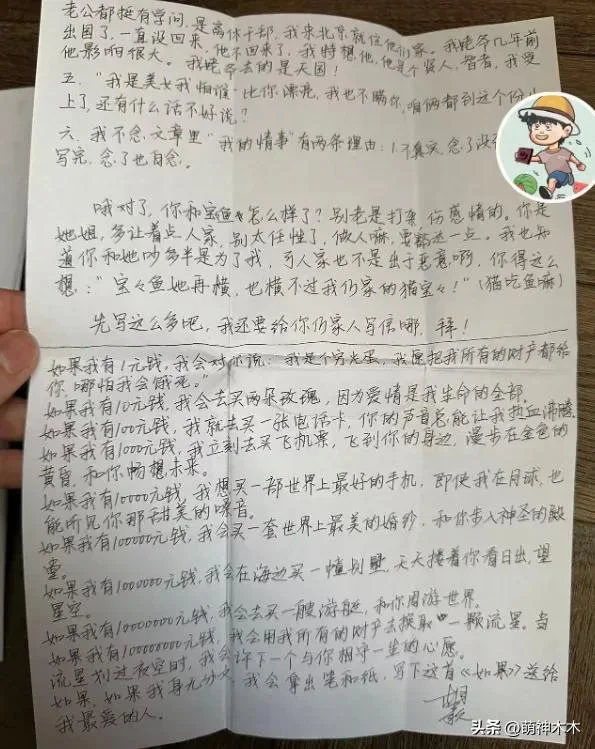 老公都挺有学问,是离休干部,我来北京就住他们家。我姥爷几年前
出国了,一直没回来,他不回来了,我特想他,他是个贤人,智者,我受
他影响很大。我姥爷去的是天国!
五.“我是美女我怕谁”比你漂亮,我也不瞒你,咱俩都到这个份儿
上了,还有什么话不好说?
六.我不念,文章里“我的情事”有两条理由:1.不真实,念了没
写完,念了也白念。
哦对了,你和宝鱼怎么样了?别老是打架,伤感情的。你是
她姐,多让着点人家,别太任性了,做人嘛,要豁达一点。我也知
道你和她吵多半是为了我,可人家也不是出于恶意啊,你得这么
想:“宝々鱼她再横,也横不过我们家的猫宝々!”(猫吃鱼嘛)
先写这么多吧,我还要给你们家人写信哪,拜!
如果我有1元钱,我会对你说:我是个穷光蛋,我愿把我所有的财产都给
你,哪怕我会饿死。”
如果我有10元钱,我会去买两朵玫瑰,因为爱情是我生命的全部。
如果我有100元钱,我就去买一张电话卡,你的声音总能让我热血沸腾。
如果我有1000元钱,我立刻去买飞机票,飞到你的身边,漫步在金色的
黄昏,和你畅想未来。
如果我有10000元钱,我想买一部世界上最好的手机,即使我在月球,也
能听见你那甜美的嗓音。
如果我有100000元钱,我会买一套世界上最美的婚纱,和你步入神圣的殿
堂。
如果我有1000000元钱,我会在海边买一幢别墅,天天搂着你看日出,望
星空。
如果我有10000000元钱,我会去买一艘游艇,和你周游世界。
如果我有100000000元钱,我会用我所有的财产去换取一颗流星。当
流星划过夜空时,我会许下一个与你相守一生的心愿。
如果,如果我身无分文,我会拿出笔和纸,写下这首《如果》送给
我最爱的人。
头条 @萌神木木